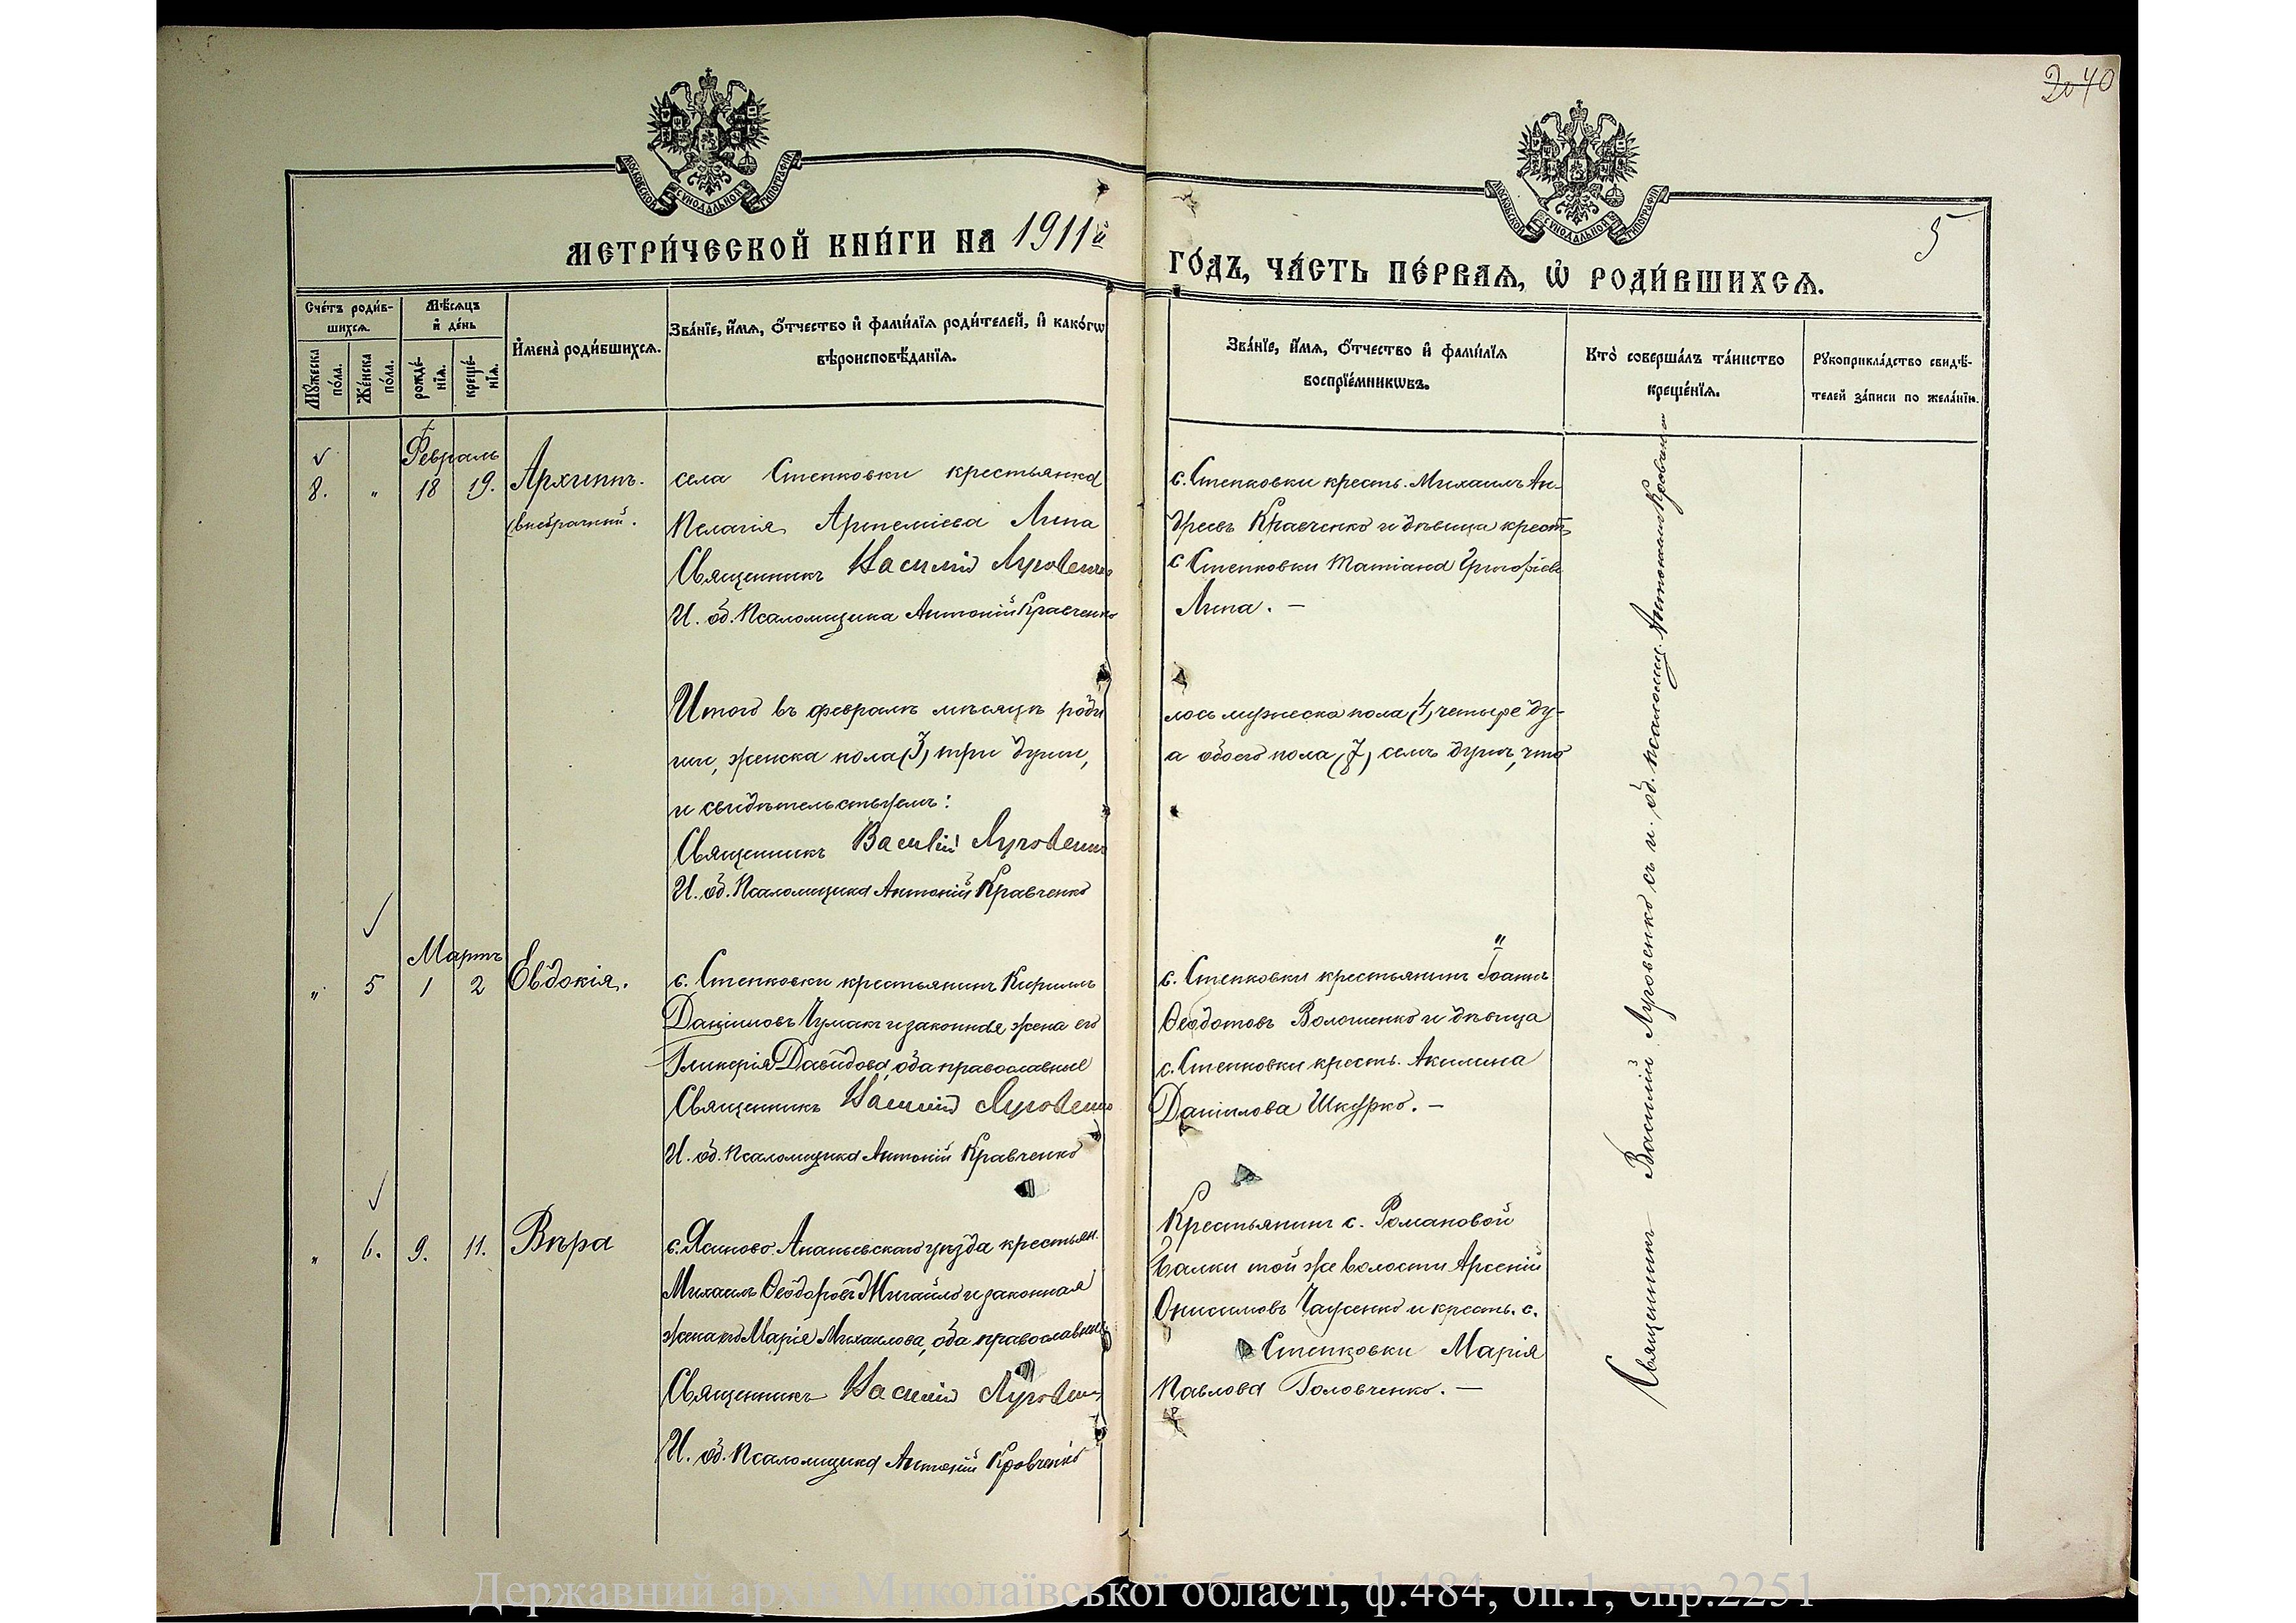 2040
МОСКОВСКОЙ СУНОДАЛЬНОЙ ТИПОГРАФІИ
МОСКОВСКОЙ СУНОДАЛЬНОЙ ТИПОГРАФІИ
МЕТРИ́ЧЕСКОЙ КНИ́ГИ НА 1911й
ГО́ДЪ, ЧА́СТЬ ПЕ́РВАЯ, Ѡ РОДИ́ВШИХСЯ.
5
Сче́тъ роди́в-
шихся.
Мѣ́сяцъ
и де́нь
Му́жеска
по́ла.
Же́нска
по́ла.
рожде́-
нія.
креще́-
нія.
Имена̀ роди́вшихся.
Зва́ніе, и́мя, о́тчество и фами́лія роди́телей, и како́гѡ
вѣроисповѣ́данія.
Зва́ніе, и́мя, о́тчество и фами́лія
воспріе́мникѡвъ.
Кто̀ соверша́лъ та́инство
креще́нія.
Рукоприкла́дство свидѣ́-
телей за́писи по жела́нію.
Февраль
8. " 18 19. Архиппъ.
внебрачный.
села Степковки крестьянка
Пелагія Артеміева Липа
Священникъ Василій Луговенко
И. об. Псаломщика Антоній Кравченко
с. Степковки кресть. Михаилъ Ан-
дреевъ Кравченко и дѣвица крест.
с Степковки Татіана Григорьева
Липа. —
Итого въ февралѣ мѣсяцѣ роди
лось мужеска пола (4) четыре ду-
ши, женска пола (3) три души,
а обоего пола (7) семь душъ, что
и свидѣтельствуемъ:
Священникъ Василій Луговенко
И. об. Псаломщика Антоній Кравченко
Мартъ
" 5 1 2 Евдокія.
с. Степковки крестьянинъ Кириллъ
Даніиловъ Чумакъ и законная жена его
Гликерія Давидова, оба православные
Священникъ Василій Луговенко
И. об. Псаломщика Антоній Кравченко
с. Степковки крестьянинъ Іоаннъ
Ѳеодотовъ Волошенко и дѣвица
с. Степковки кресть. Акилина
Даніилова Шкурко. —
" 6. 9. 11. Вѣра
с. Ананьевскаго уѣзда крестьян.
Михаилъ Ѳеодоровъ и законная
жена его Марія Михаилова, оба православные
Священникъ Василій Луговенко
И. об. Псаломщика Антоній Кравченко
Крестьянинъ с. Романовой
Балки той же волости Арсеній
Онисимовъ и кресть. с.
Степковки Марія
Павлова Головченко. —
Священникъ Василій Луговенко съ и. об. псаломщ. Антоніемъ Кравченко
Державний архів Миколаївської області, ф.484, оп.1, спр.2251